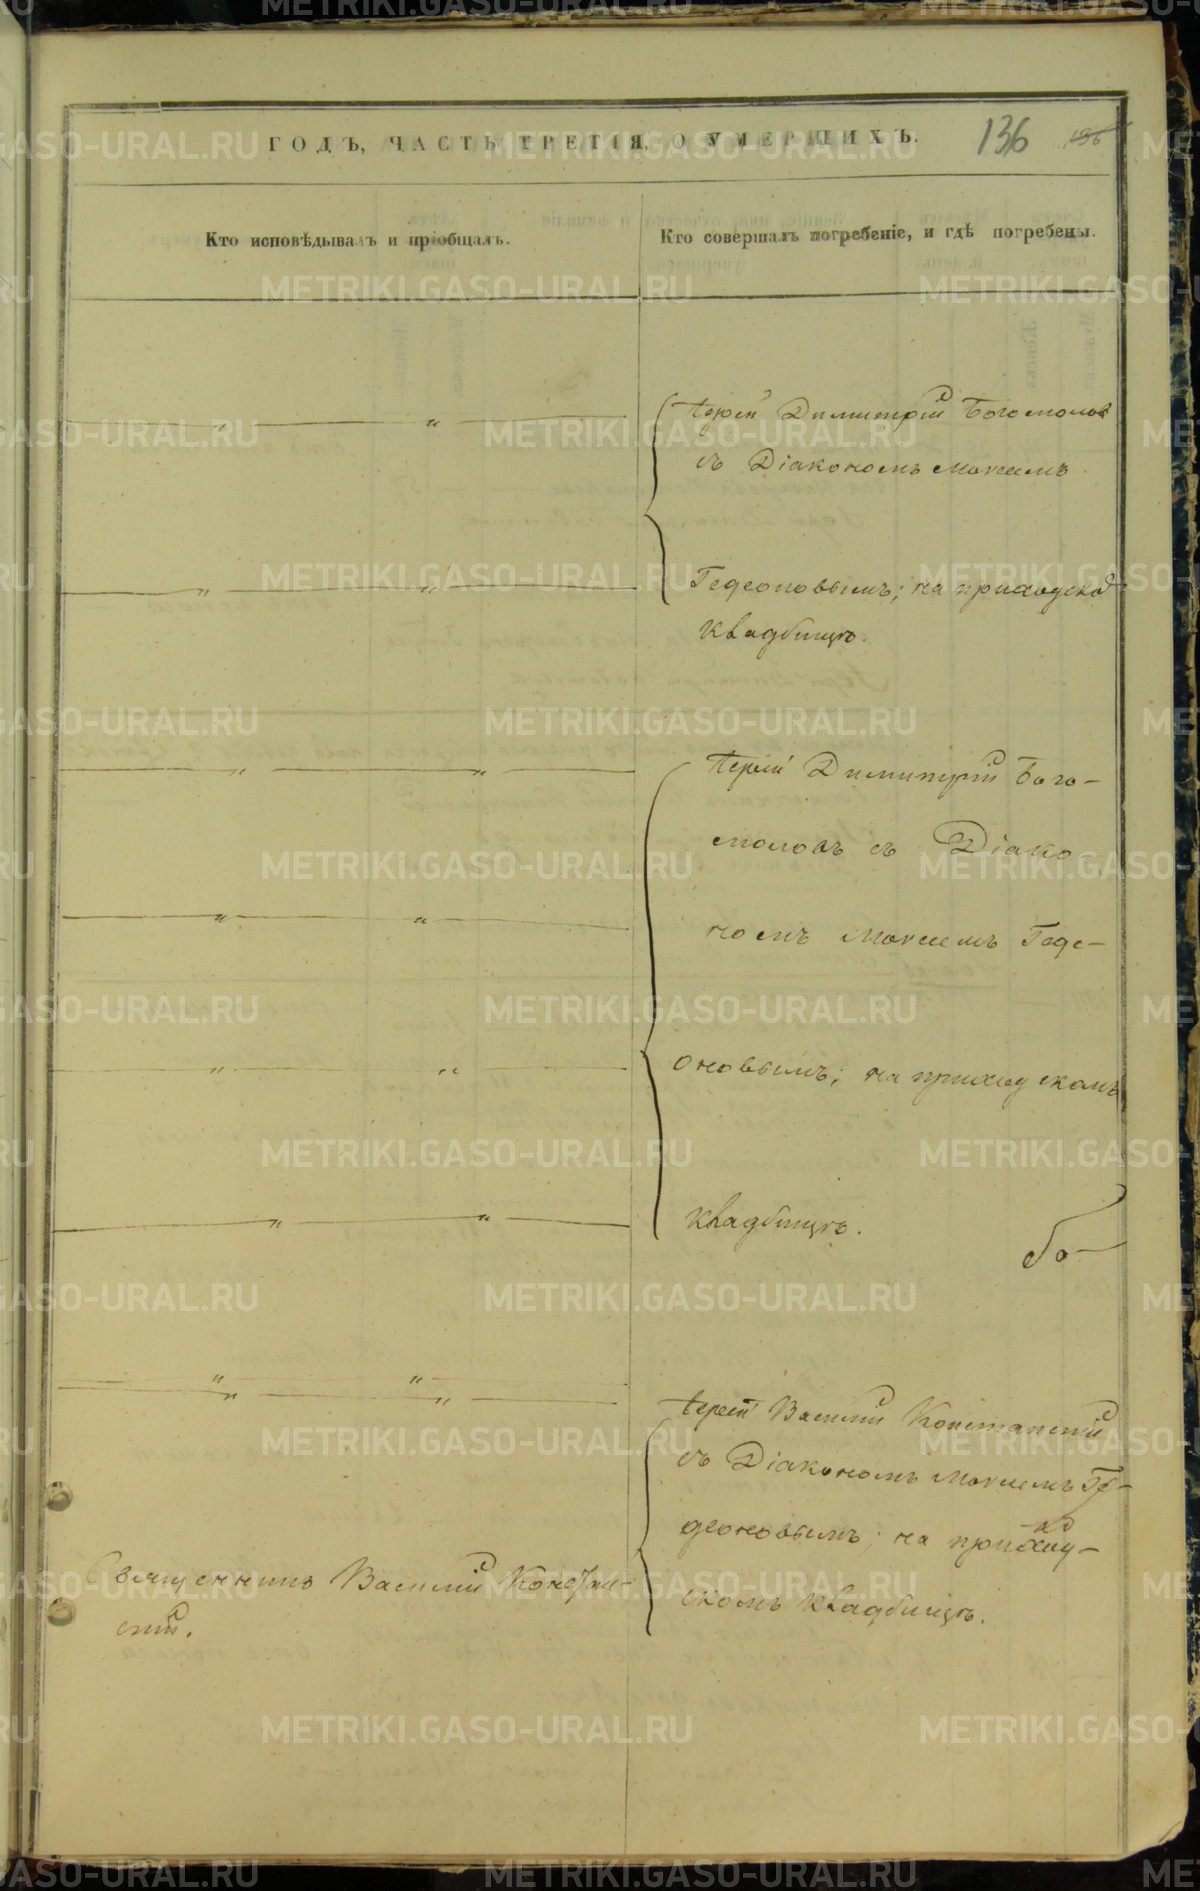 ГОДЪ, ЧАСТЬ ТРЕТІЯ, О УМЕРШИХЪ.
136
136
Кто исповѣдывалъ и пріобщалъ.
Кто совершалъ погребеніе, и гдѣ погребены.
Іерей Димитрій Богомолов
съ Діакономъ Мокіемъ
Гедеоновымъ; на приходско
кладбищѣ.
Іерей Димитрій Бого-
моловъ съ Діако-
номъ Мокіемъ Геде-
оновымъ; на приходскомъ
кладбищѣ.
Іерей Василій
съ Діакономъ Мокіемъ Ге-
деоновымъ; на приход-
скомъ кладбищѣ.
Священникъ Василій
METRIKI.GASO-URAL.RU